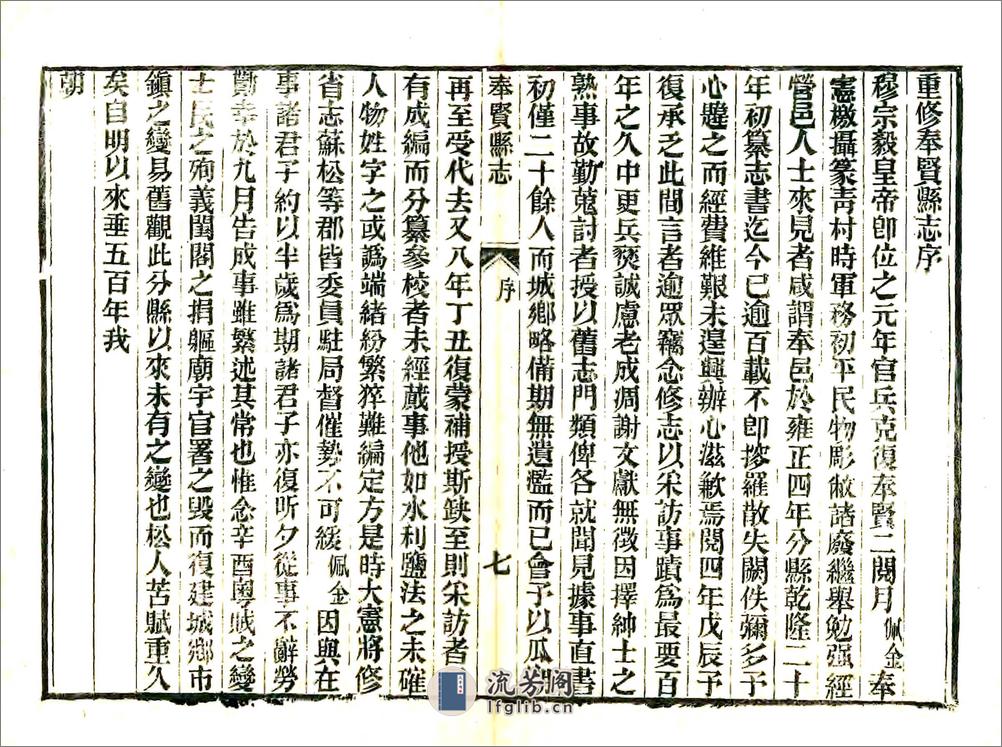 重修奉賢縣志序
穆宗毅皇帝卽位之元年官兵克復奉賢二閱月佩金奉
憲檄攝篆靑村時軍務初平民物彫敝諸廢繼舉勉强經
營邑人士來見者咸謂奉邑於雍正四年分縣乾隆二十
年初纂志書迄今已逾百載不卽摉羅散失闕佚彌多予
心韙之而經費維艱未遑興辦心滋歉焉閱四年戊辰予
復承乏此間言者逾眾竊念修志以采訪事蹟爲最要百
年之久中更兵燹誠慮老成凋謝文獻無徵因擇紳士之
熟事故勤蒐討者授以舊志門類俾各就聞見據事直書
初僅二十餘人而城鄉略備期無遺濫而已會予以瓜
奉賢縣志
序
七
再至受代去又八年丁丑復蒙補授斯缺至則采訪者
有成編而分纂參校者未經蕆事他如水利鹽法之未確
人物姓字之或譌端緖紛繁猝難編定方是時大憲將修
省志蘇松等郡皆委員駐局督催勢不可緩佩金因與在
事諸君子約以半歲爲期諸君子亦復昕夕從事不辭勞
勩幸於九月告成事雖繁述其常也惟念辛酉粵賊之變
士民之殉義閨閣之捐軀廟宇官署之毀而復建城鄉市
鎭之變易舊觀此分縣以來未有之變也松人苦賦重久
矣自明以來垂五百年我
朝
流芳阁
lfglib.cn